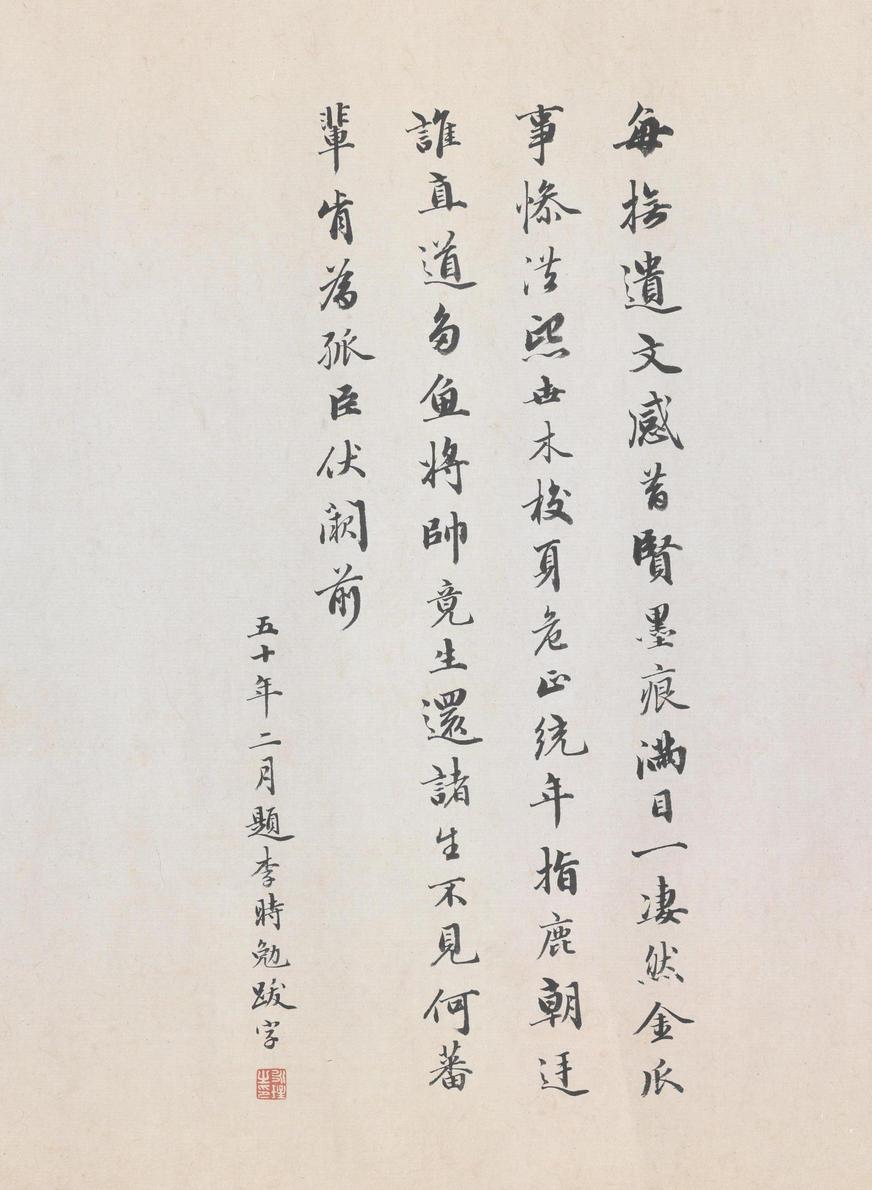 每撫遺文感昔賢墨痕滿目一淒然金瓜
事慘洪熙世木校身危正統年指鹿朝廷
誰直道芻魚將帥竟生還諸生不見何蕃
輩肯為孤臣伏闕前
五十年二月題李時勉跋字